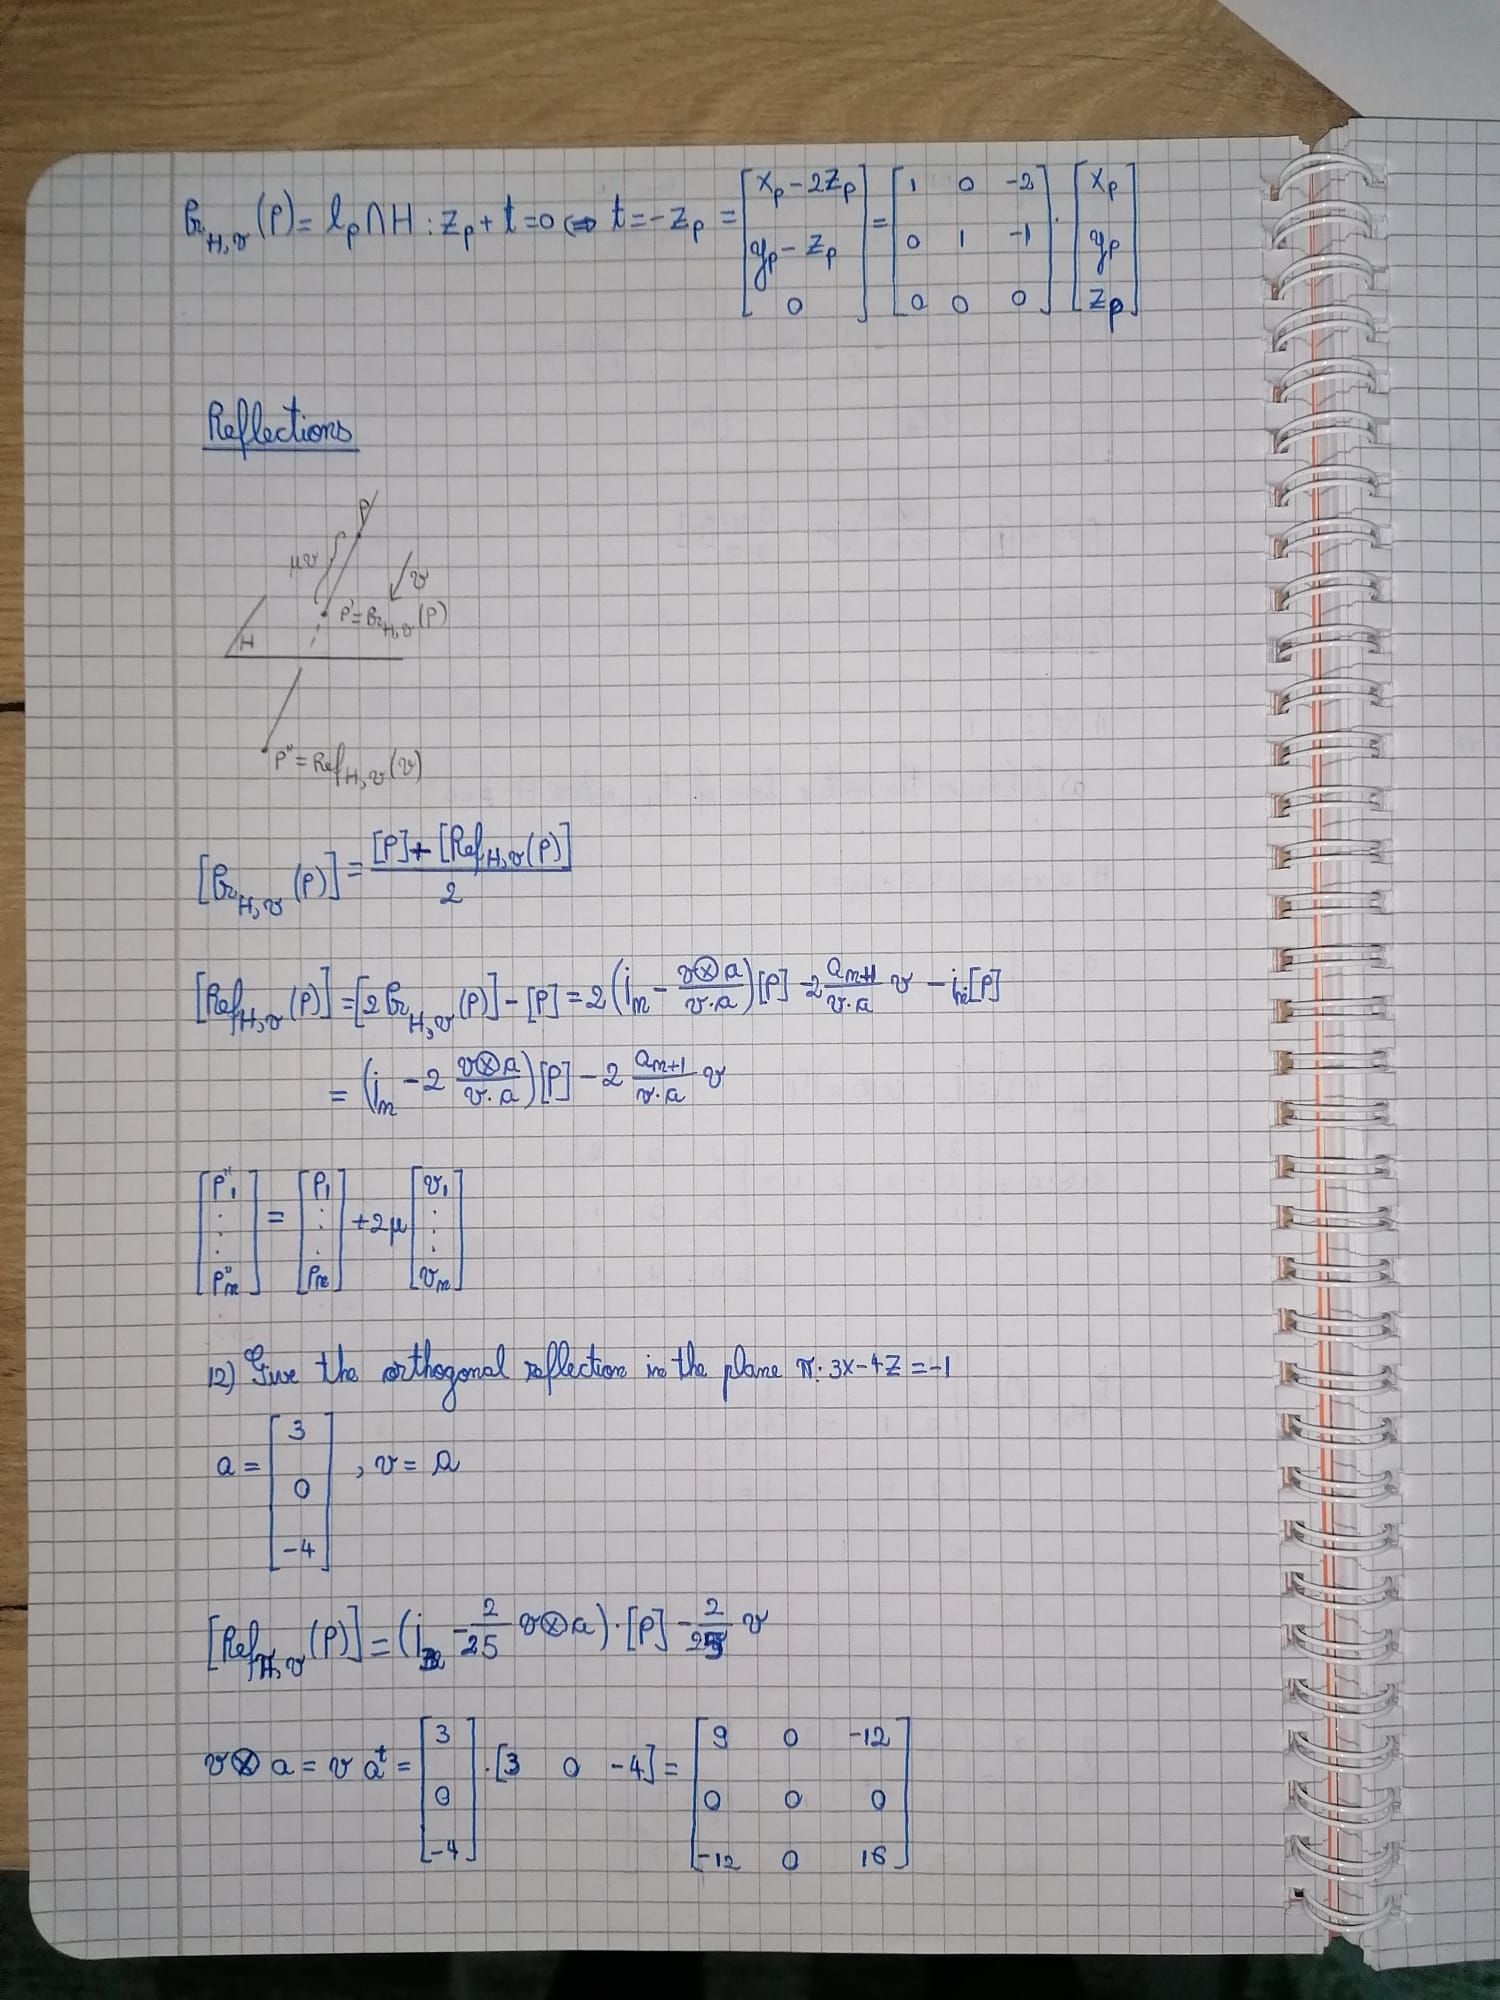 Pr_{H,v}(P) = l_p ∩ H : z_p + t = 0 ⇔ t = -z_p = [x_p - 2z_p; y_p - z_p; 0] = [1 0 -2; 0 1 -1; 0 0 0] · [x_p; y_p; z_p]
Reflections
P
μv
v
P' = Pr_{H,v}(P)
H
P'' = Ref_{H,v}(v)
[Pr_{H,v}(P)] = ([P] + [Ref_{H,v}(P)]) / 2
[Ref_{H,v}(P)] = [2Pr_{H,v}(P)] - [P] = 2(i_n - (v⊗a)/(v·a))[P] - 2 (a_{n+1})/(v·a) v - i_n[P]
= (i_n - 2 (v⊗a)/(v·a))[P] - 2 (a_{n+1})/(v·a) v
[P''_1; ⋮; P''_n] = [P_1; ⋮; P_n] + 2μ [v_1; ⋮; v_n]
12) Give the orthogonal reflection in the plane π: 3x - 4z = -1
a = [3; 0; -4], v = a
[Ref_{π,v}(P)] = (i - 2/25 v⊗a) · [P] - 2/25 v
v⊗a = v a^t = [3; 0; -4] · [3 0 -4] = [9 0 -12; 0 0 0; -12 0 16]